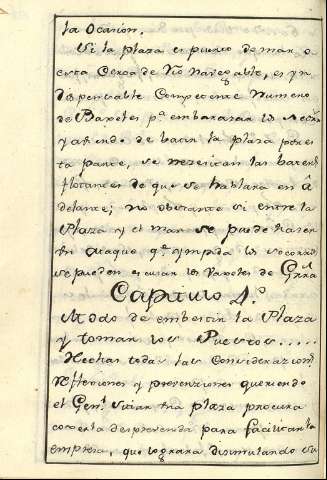 la Ocasion.
Si la plaza es puerto de mar o
esta Cerca de Rio navegable, es yn
dispensable Competente Numero
de Baxeles pª embarazar los
y abiendo de batir la plaza por es
ta parte, se necesitan las bateri
flotantes de que se hablara en â
delante; no obstante si entre la
Plaza y el mar se puede hazer
Un Ataque qᵉ ympida los socorros
se pueden escusar los Vaxeles de Grra
Capitulo 4.º
Modo de embestir la Plaza
y tomar los Puestos.....
Hechas todas las Considerazionˢ
Reflexiones y prevenziones queriendo
el Genˡ sitiar una plaza procura
cojerla desprevenida para facilitar la
empresa, que lograra disimulando su